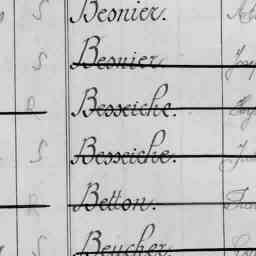 S Besnier.
S Besnier.
R Besseiche.
S Besseiche.
R Betton.
S Beucher.